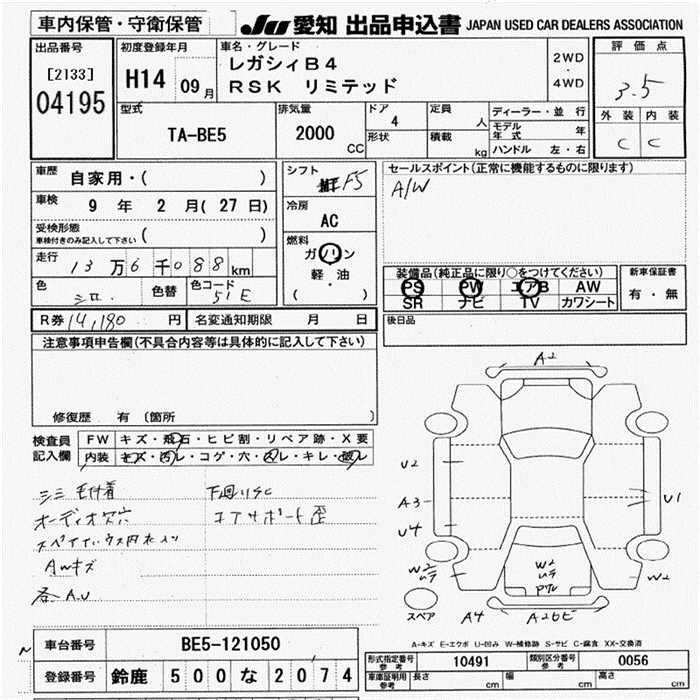 車内保管・守衛保管
JU 愛知 出品申込書 JAPAN USED CAR DEALERS ASSOCIATION
出品番号
[2133]
04195
初度登録年月
H14 09月
車名・グレード
レガシィB4
RSK リミテッド
2WD
・
4WD
評価点
3.5
外装 内装
C C
型式
TA-BE5
排気量
2000 CC
ドア
4
形状
定員
人
積載
kg
ディーラー・並行
モデル年式 年
ハンドル 左・右
車歴
自家用・( )
車検
9 年 2 月( 27 日)
受検形態
車検付きのみ記入して下さい ( )
走行
13万6千088km
色
シロ
色替
色コード
51E
シフト
F5
冷房
AC
燃料
ガソリン
軽・油
( )
セールスポイント(正常に機能するものに限ります)
A/W
装備品(純正品に限り○をつけてください)
PS PW エアB AW
SR ナビ TV カワシート
新車保証書
有・無
後日品
R券 14,180 円 名変通知期限 月 日
注意事項申告欄(不具合内容等は具体的に記入して下さい)
修復歴 有 (箇所 )
検査員記入欄
FW キズ・飛石・ヒビ割・リペア跡・X要
内装 キズ・汚レ・コゲ・穴・スレ・キレ・破レ
シミ 毛付着
下廻りSC
オーディオ欠穴
コアサポート歪
AWキズ
各A.U
A2
U2
A3
U4
U1
W2
ムラ
W2
ムラ
Pクル
W2
スペア
A4
A2bE
A-キズ E-エクボ U-凹み W-補修跡 S-サビ C-腐食 XX-交換済
車台番号 BE5-121050
登録番号 鈴鹿 500な2074
形式指定番号 参考 10491
類別区分番号 参考 0056
車庫証明用 参考 長さ cm 幅 cm 高さ cm